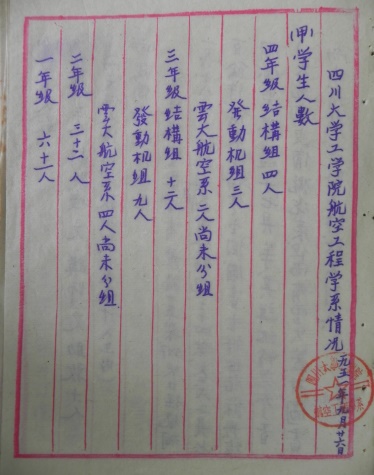 四川大学工学院航空工程学系情况 一九五一年九月廿六日
(甲)学生人數
四年級 结構組 四人
發動机組 三人
雲大航空系 二人尚未分組
三年級 结構組 十二人
發動机組 九人
雲大航空系 四人尚未分組
二年級 三十二人
一年級 六十一人